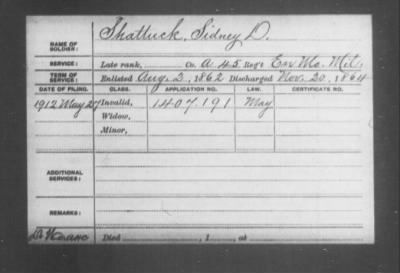 NAME OF SOLDIER: Shattuck, Sidney D.
SERVICE: Late rank, Co. A 45 Reg't En. Mo. Mil.
TERM OF SERVICE: Enlisted Aug. 2, 1862 Discharged Nov. 20, 1864
DATE OF FILING. CLASS. APPLICATION NO. LAW. CERTIFICATE NO.
1912 May 27 Invalid, 1407,191 May
Widow,
Minor,
ADDITIONAL SERVICES:
REMARKS:
Died , 1 , at